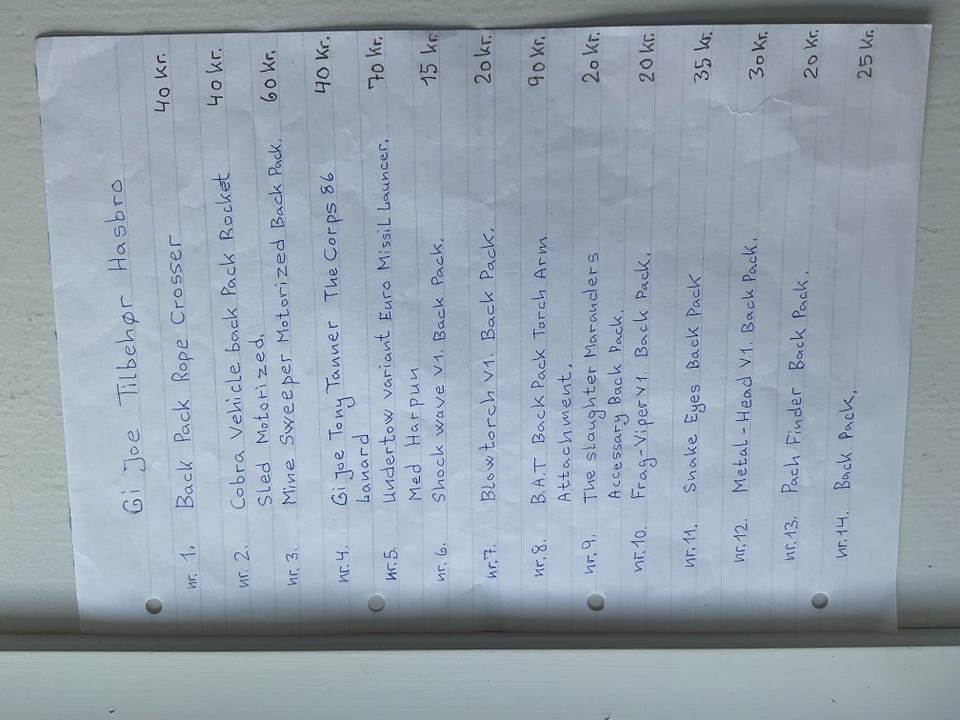 Gi Joe Tilbehør Hasbro
nr. 1. Back Pack Rope Crosser 40 kr.
nr. 2. Cobra Vehicle back Pack Rocket 40 kr.
Sled Motorized.
nr. 3. Mine Sweeper Motorized Back Pack. 60 kr.
nr. 4. Gi Joe Tony Tanner The Corps 86 40 kr.
Lanard
nr. 5. Undertow variant Euro Missil Launcer. 70 kr.
Med Harpun
nr. 6. Shock wave v1. Back Pack. 15 kr.
nr. 7. Blowtorch v1. Back Pack. 20 kr.
nr. 8. B.A.T Back Pack Torch Arm 90 kr.
Attachment.
nr. 9. The slaughter Marauders 20 kr.
Acessary Back Pack.
nr. 10. Frag-Viper v1. Back Pack. 20 kr.
nr. 11. Snake Eyes Back Pack 35 kr.
nr. 12. Metal-Head v1. Back Pack. 30 kr.
nr. 13. Pach Finder Back Pack. 20 kr.
nr. 14. Back Pack. 25 kr.